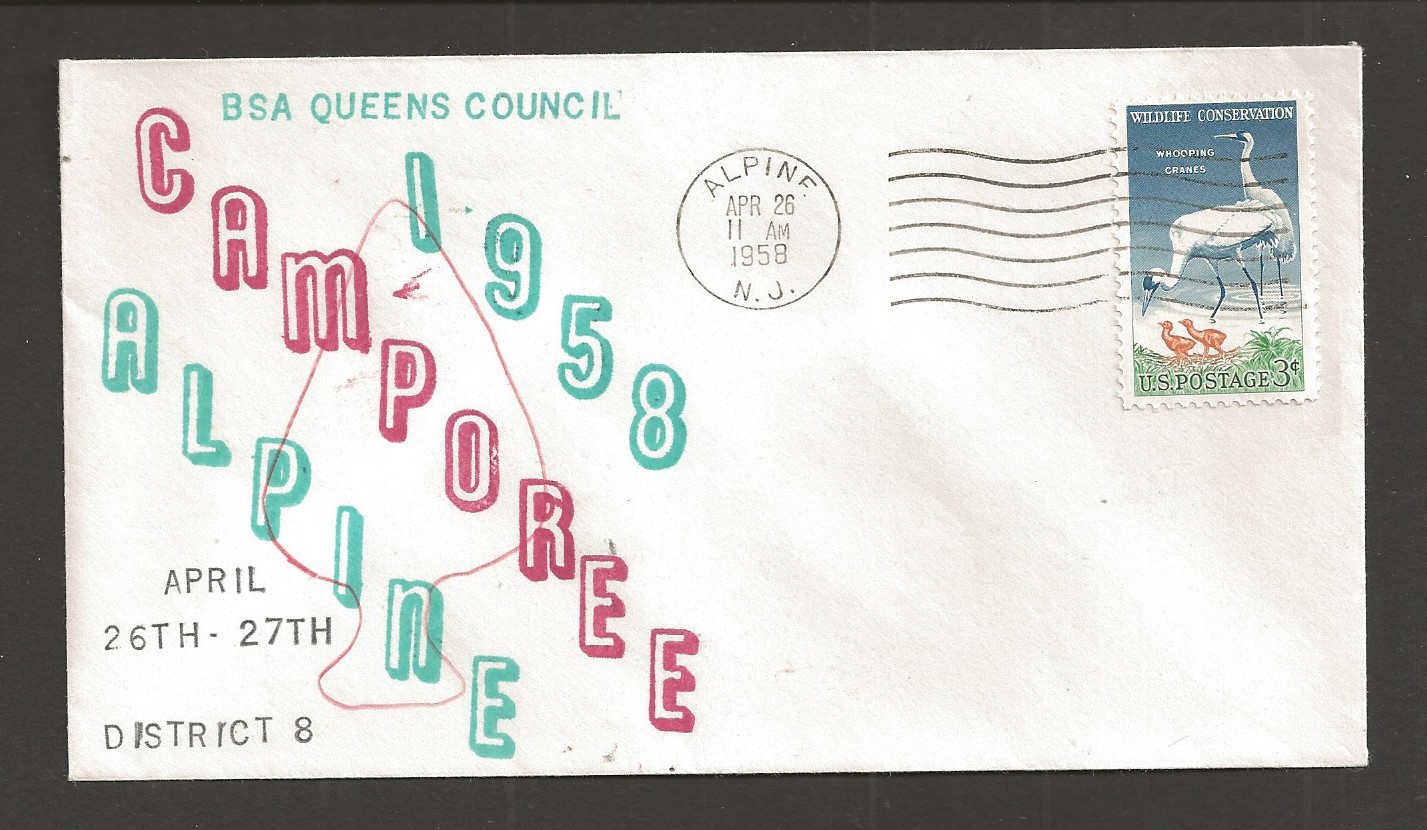 BSA QUEENS COUNCIL
CAMPOREE
1958
ALPINE
APRIL
26TH - 27TH
DISTRICT 8
ALPINE
APR 26
11 AM
1958
N. J.
WILDLIFE CONSERVATION
WHOOPING
CRANES
U.S. POSTAGE 3¢